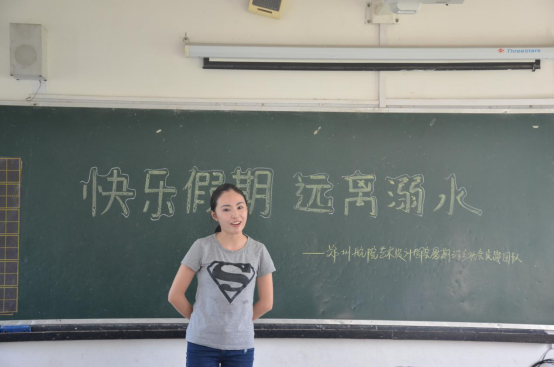 快乐假期 远离溺水
——郑州航院艺术设计学院暑期社会实践团队
Threestars